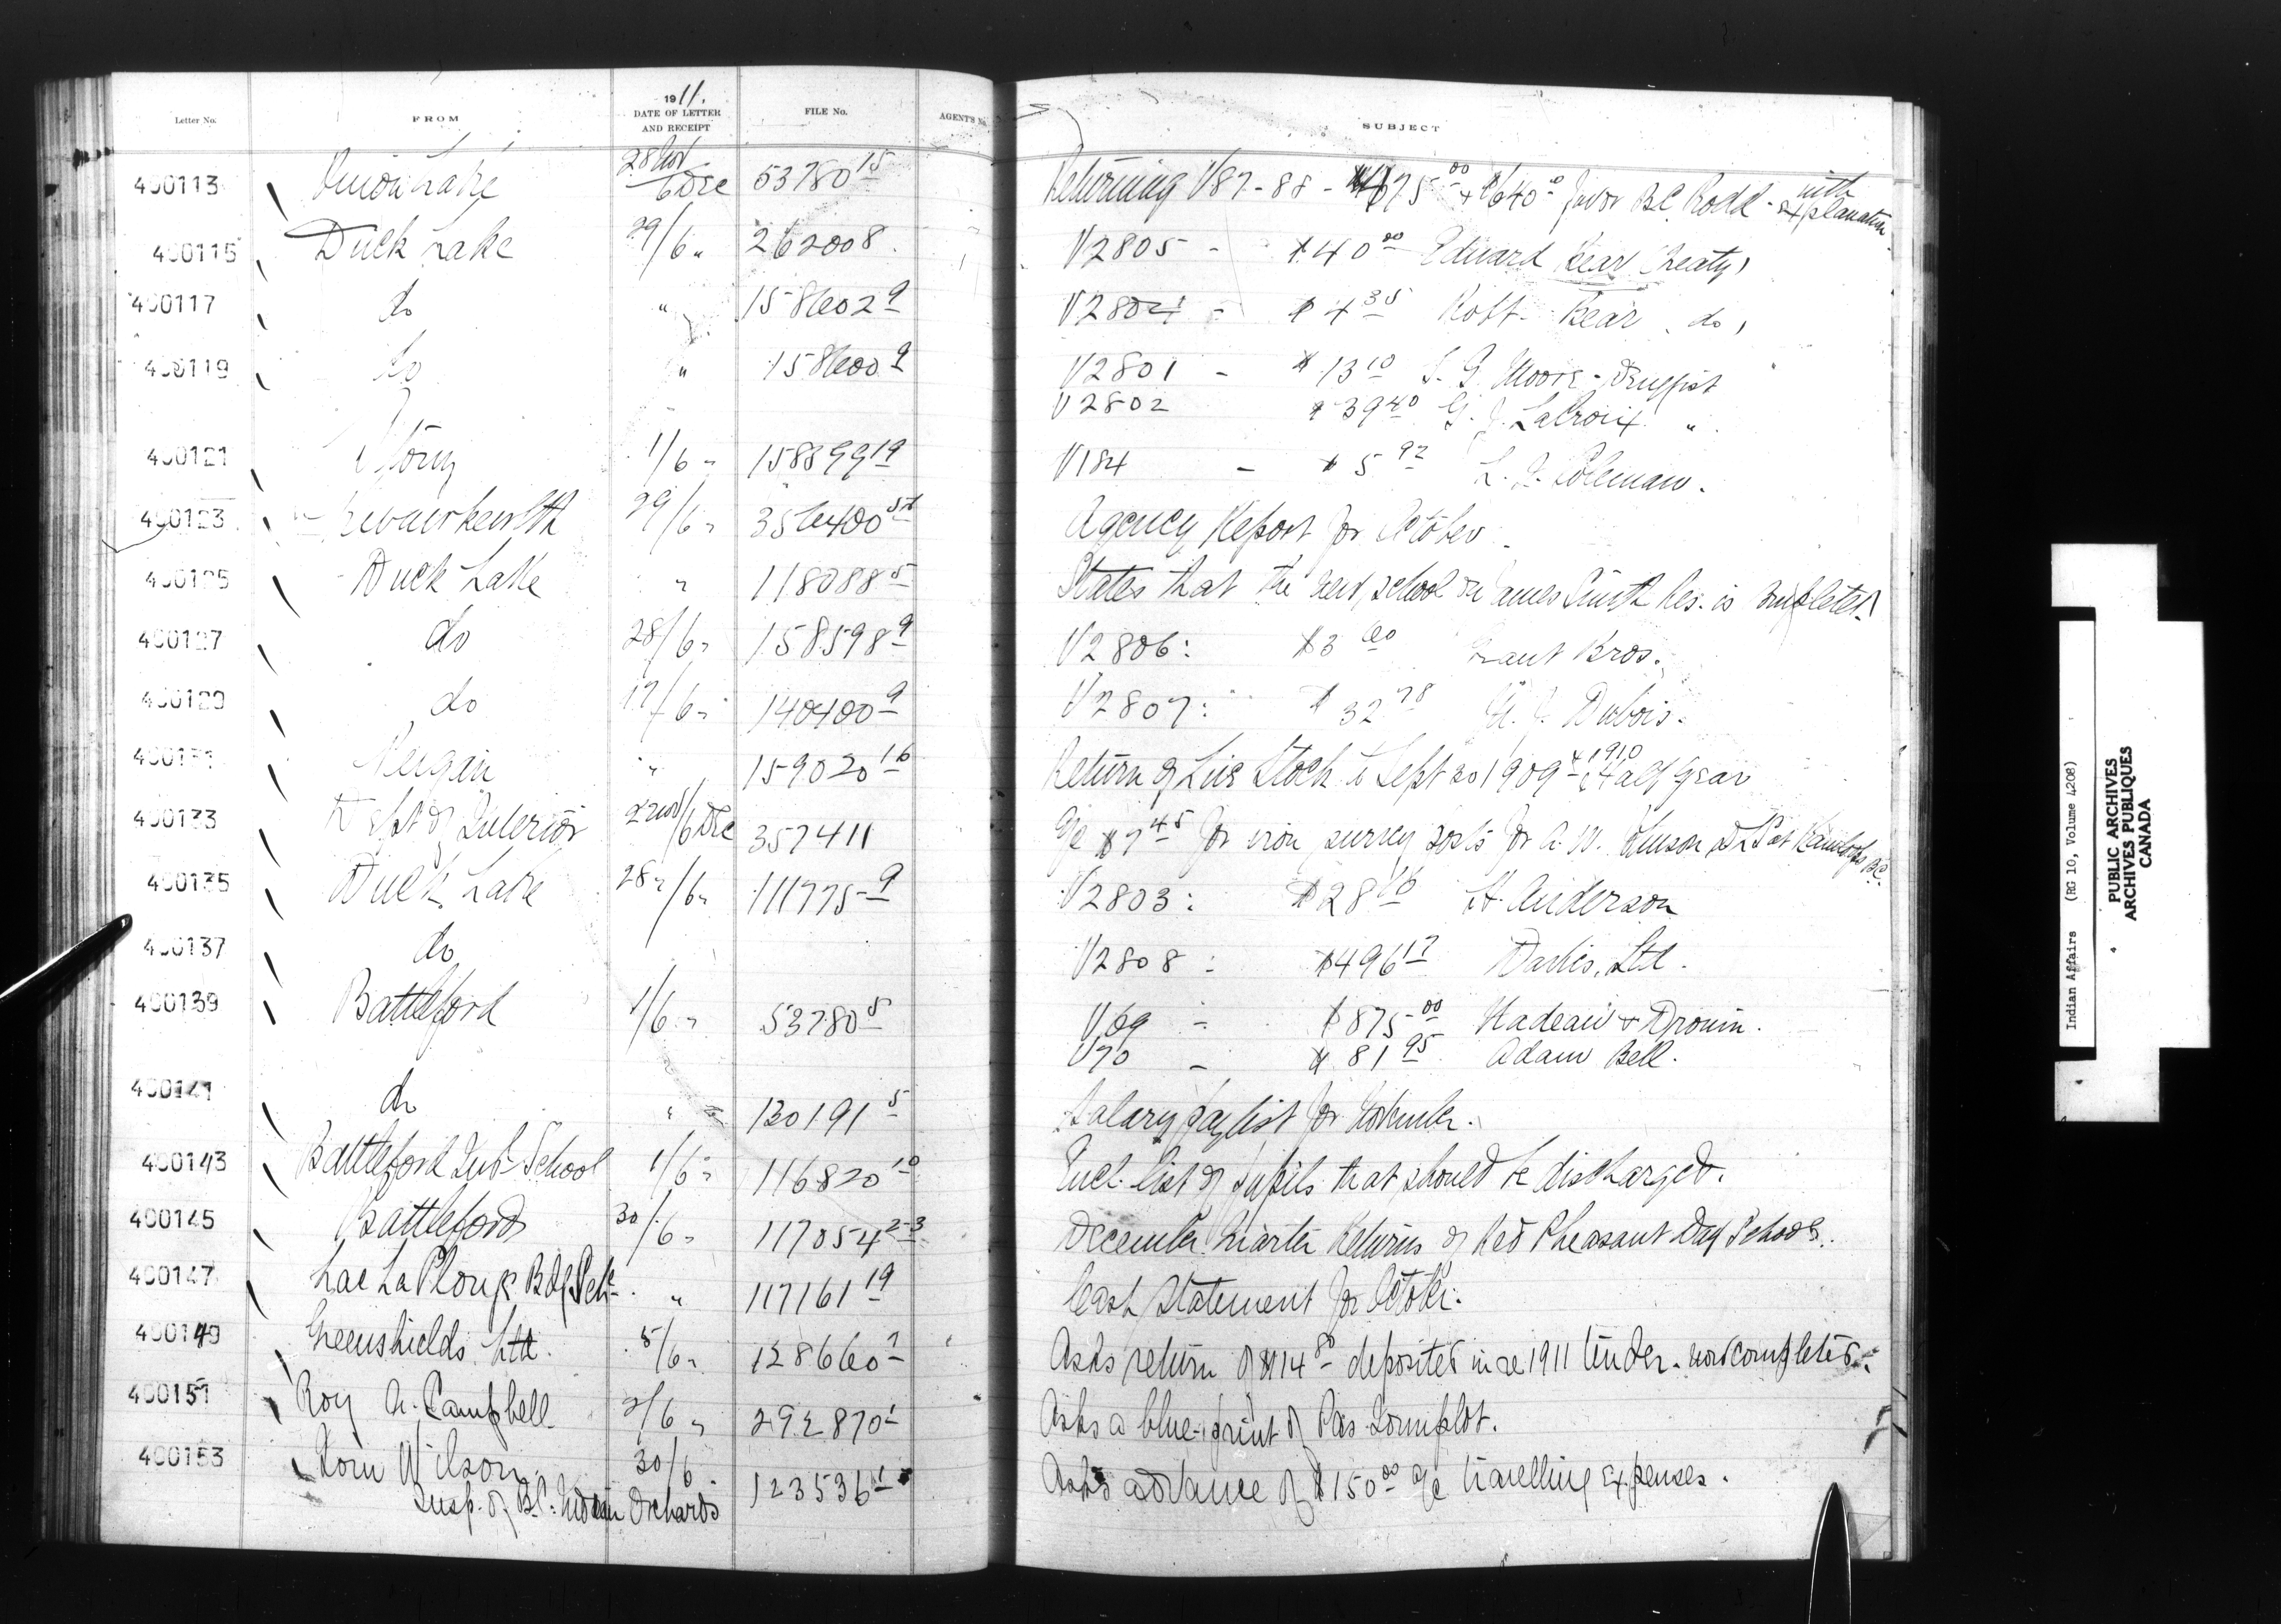 Letter No. FROM 1911. DATE OF LETTER AND RECEIPT FILE No. AGENT'S No. SUBJECT
400113 Onion Lake 28 Nov/6 Dec 53780 15 Returning V87-88 - $675 00 + $640 favor B.C. Rodd - with explanation.
400115 Duck Lake 29/6 " 262008. V2805 - $40 00 Edward Bear (Treaty)
400117 do " 158602 9 V2804 - $4 35 Robt. Bear do
400119 do " 158600 9 V2801 - $13 10 Moore - Druggist
V2802 $39 40 LaCroix "
400121 Stony 1/6 " 158899 19 V184 - $5 92 Coleman.
400123 29/6 " 356400 Agency Report for October
400125 Duck Lake " 118088 5 States that the new school on James Smith Res. is completed
400127 do 28/6 " 158598 9 V2806: $3 60 Grant Bros.
400129 do 17/6 " 140400 9 V2807: $32 78 Dubois.
400131 Peigan " 159020 16 Return of Live Stock to Sept 30 1909 & 1910 Half year
400133 Dept of Interior 2 Nov/6 Dec 357411 a/c $7 45 for iron survey posts for A. W. Johnson Kamloops B.C.
400135 Duck Lake 28 "/6 " 111775 9 V2803: $28 16 H. Anderson
400137 do V2808: $496 17 Ltd.
400139 Battleford 1/6 " 53780 5 V69 - $875 00 Nadeau & Drouin.
V70 - $81 95 Adam Bell.
400141 do " 130191 5 Salary paylist for November.
400143 Battleford Ind School 1/6 " 116820 10 Encl. list of pupils that should be discharged.
400145 Battleford 30/6 " 117054 2-3 December Quarter Returns of Red Pheasant Day School.
400147 Lac La Plonge Bdg Sch. " 117161 19 Cash Statement for October.
400149 Greenshields Ltd. 5/6 " 128660 Asks return of $14 80 deposited in re 1911 tender - now completed.
400151 Roy A. Campbell 2/6 " 292870 1 Asks a blue-print of Pas Townplot.
400153 Tom Wilson 30/6 123536 Asks advance of $150 00 a/c travelling expenses.
Insp. of B.C. Indian Orchards
Indian Affairs (RG 10, Volume 4208)
PUBLIC ARCHIVES
ARCHIVES PUBLIQUES
CANADA